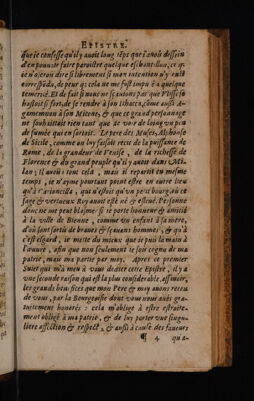 EPISTRE.
que ie confesse qu'il y auoit long tẽps que i'auois dessein
d'en pouuoir faire paroistre quelque eschantillon, ce que
ie n'oserois dire si librement si mon intention n'y eust
correspõdu, de peur que cela ne me fust imputé à quelque
temerité. Et de fait si nous ne sçauions pas que Vlisse se
hastoit si fort, de se rendre à son Ithaca, comme aussi A-
gamemnon à son Mitenes, & que ce grand personnage
ne souhaittoit rien tant que de voir de loing vn peu
de fumée qui en sortoit. Le pere des Muses, Alphonse
de Sicile, comme on luy faisoit recit de la puissance de
Rome, de la grandeur de Venise, de la richesse de
Florence & du grand peuple qu'il y auoit dans Mi-
lan; Il aduoüa tout cela, mais il repartit en mesme
temps, ie n'ayme pourtant point estre en autre lieu
qu'à qui n'estoit qu'vn petit bourg, où ce
sage & vertueux Roy auoit esté né & esleué. Personne
donc ne me peut blasmer si ie porte honneur & amitié
à la ville de Bienne, comme vn enfant à sa mere,
d'où sont sortis de braues & sçauants hommes, & qu'à
c'est esgard, ie mette du mieux que ie puis la main à
l'œuure, afin que non seulement ie sois cognu de ma
patrie, mais ma partie par moy. Apres ce premier
Suiet qui m'a meu à vous dedier cette Epistre, il y a
vne seconde raison qui est la plus considerable, assauoir,
les grands bien faits que mon Pere & moy auons receu
de vous, par la Bourgeoisie dont vous nous auez gra-
tuitement honorés: cela m'oblige à estre estroite-
ment obligé à ma patrie, & de luy porter vne singu-
liere affection & respect, & aussi à cause des faueurs
¶ 4 qu'a-